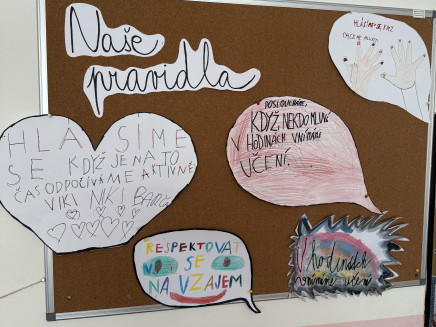 Naše
pravidla
HLÁSÍME SE, KDYŽ
CHCEME MLUVIT
HLÁSÍME
SE KDYŽ JE NA TO
ČAS ODPOČÍVÁME AKTIVNĚ
VIKI NIKI BARČA
POSLOUCHÁME,
KDYŽ NĚKDO MLUVÍ
V HODINÁCH VNÍMÁME
UČENÍ....
RESPEKTOVAT
SE
NAVZAJEM
V hodinách
vnímáme učení